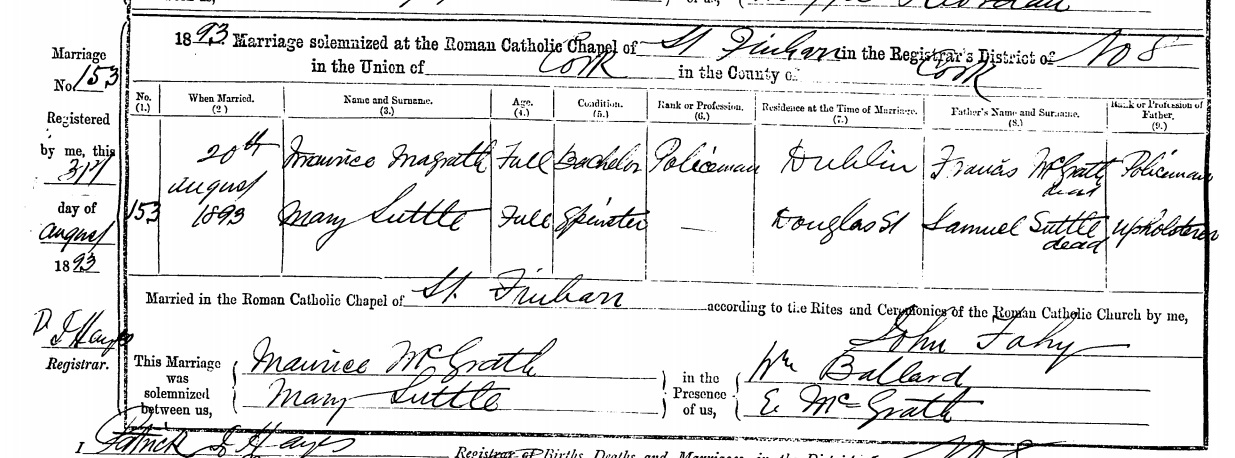 1893 Marriage solemnized at the Roman Catholic Chapel of St Finbarr in the Registrar's District of No 8
in the Union of Cork in the County of Cork
Marriage
No. 153
Registered
by me, this
31st
day of
August
1893
D. J Hayes
Registrar.
No. (1.) When Married. (2) Name and Surname. (3.) Age. (4.) Condition. (5.) Rank or Profession. (6.) Residence at the Time of Marriage. (7.) Father's Name and Surname. (8.) Rank or Profession of Father. (9.)
153 20th August 1893
Maurice Magrath Full Bachelor Policeman Dublin Francis McGrath dead Policeman
Mary Suttle Full Spinster — Douglas St Samuel Suttle dead Upholsterer
Married in the Roman Catholic Chapel of St. Finbarr according to the Rites and Ceremonies of the Roman Catholic Church by me,
John Fahy
This Marriage was solemnized between us, Maurice McGrath
Mary Suttle
in the Presence of us, Wm Ballard
E. McGrath
I Patrick J Hayes Registrar of Births, Deaths and Marriages in the District of No 8